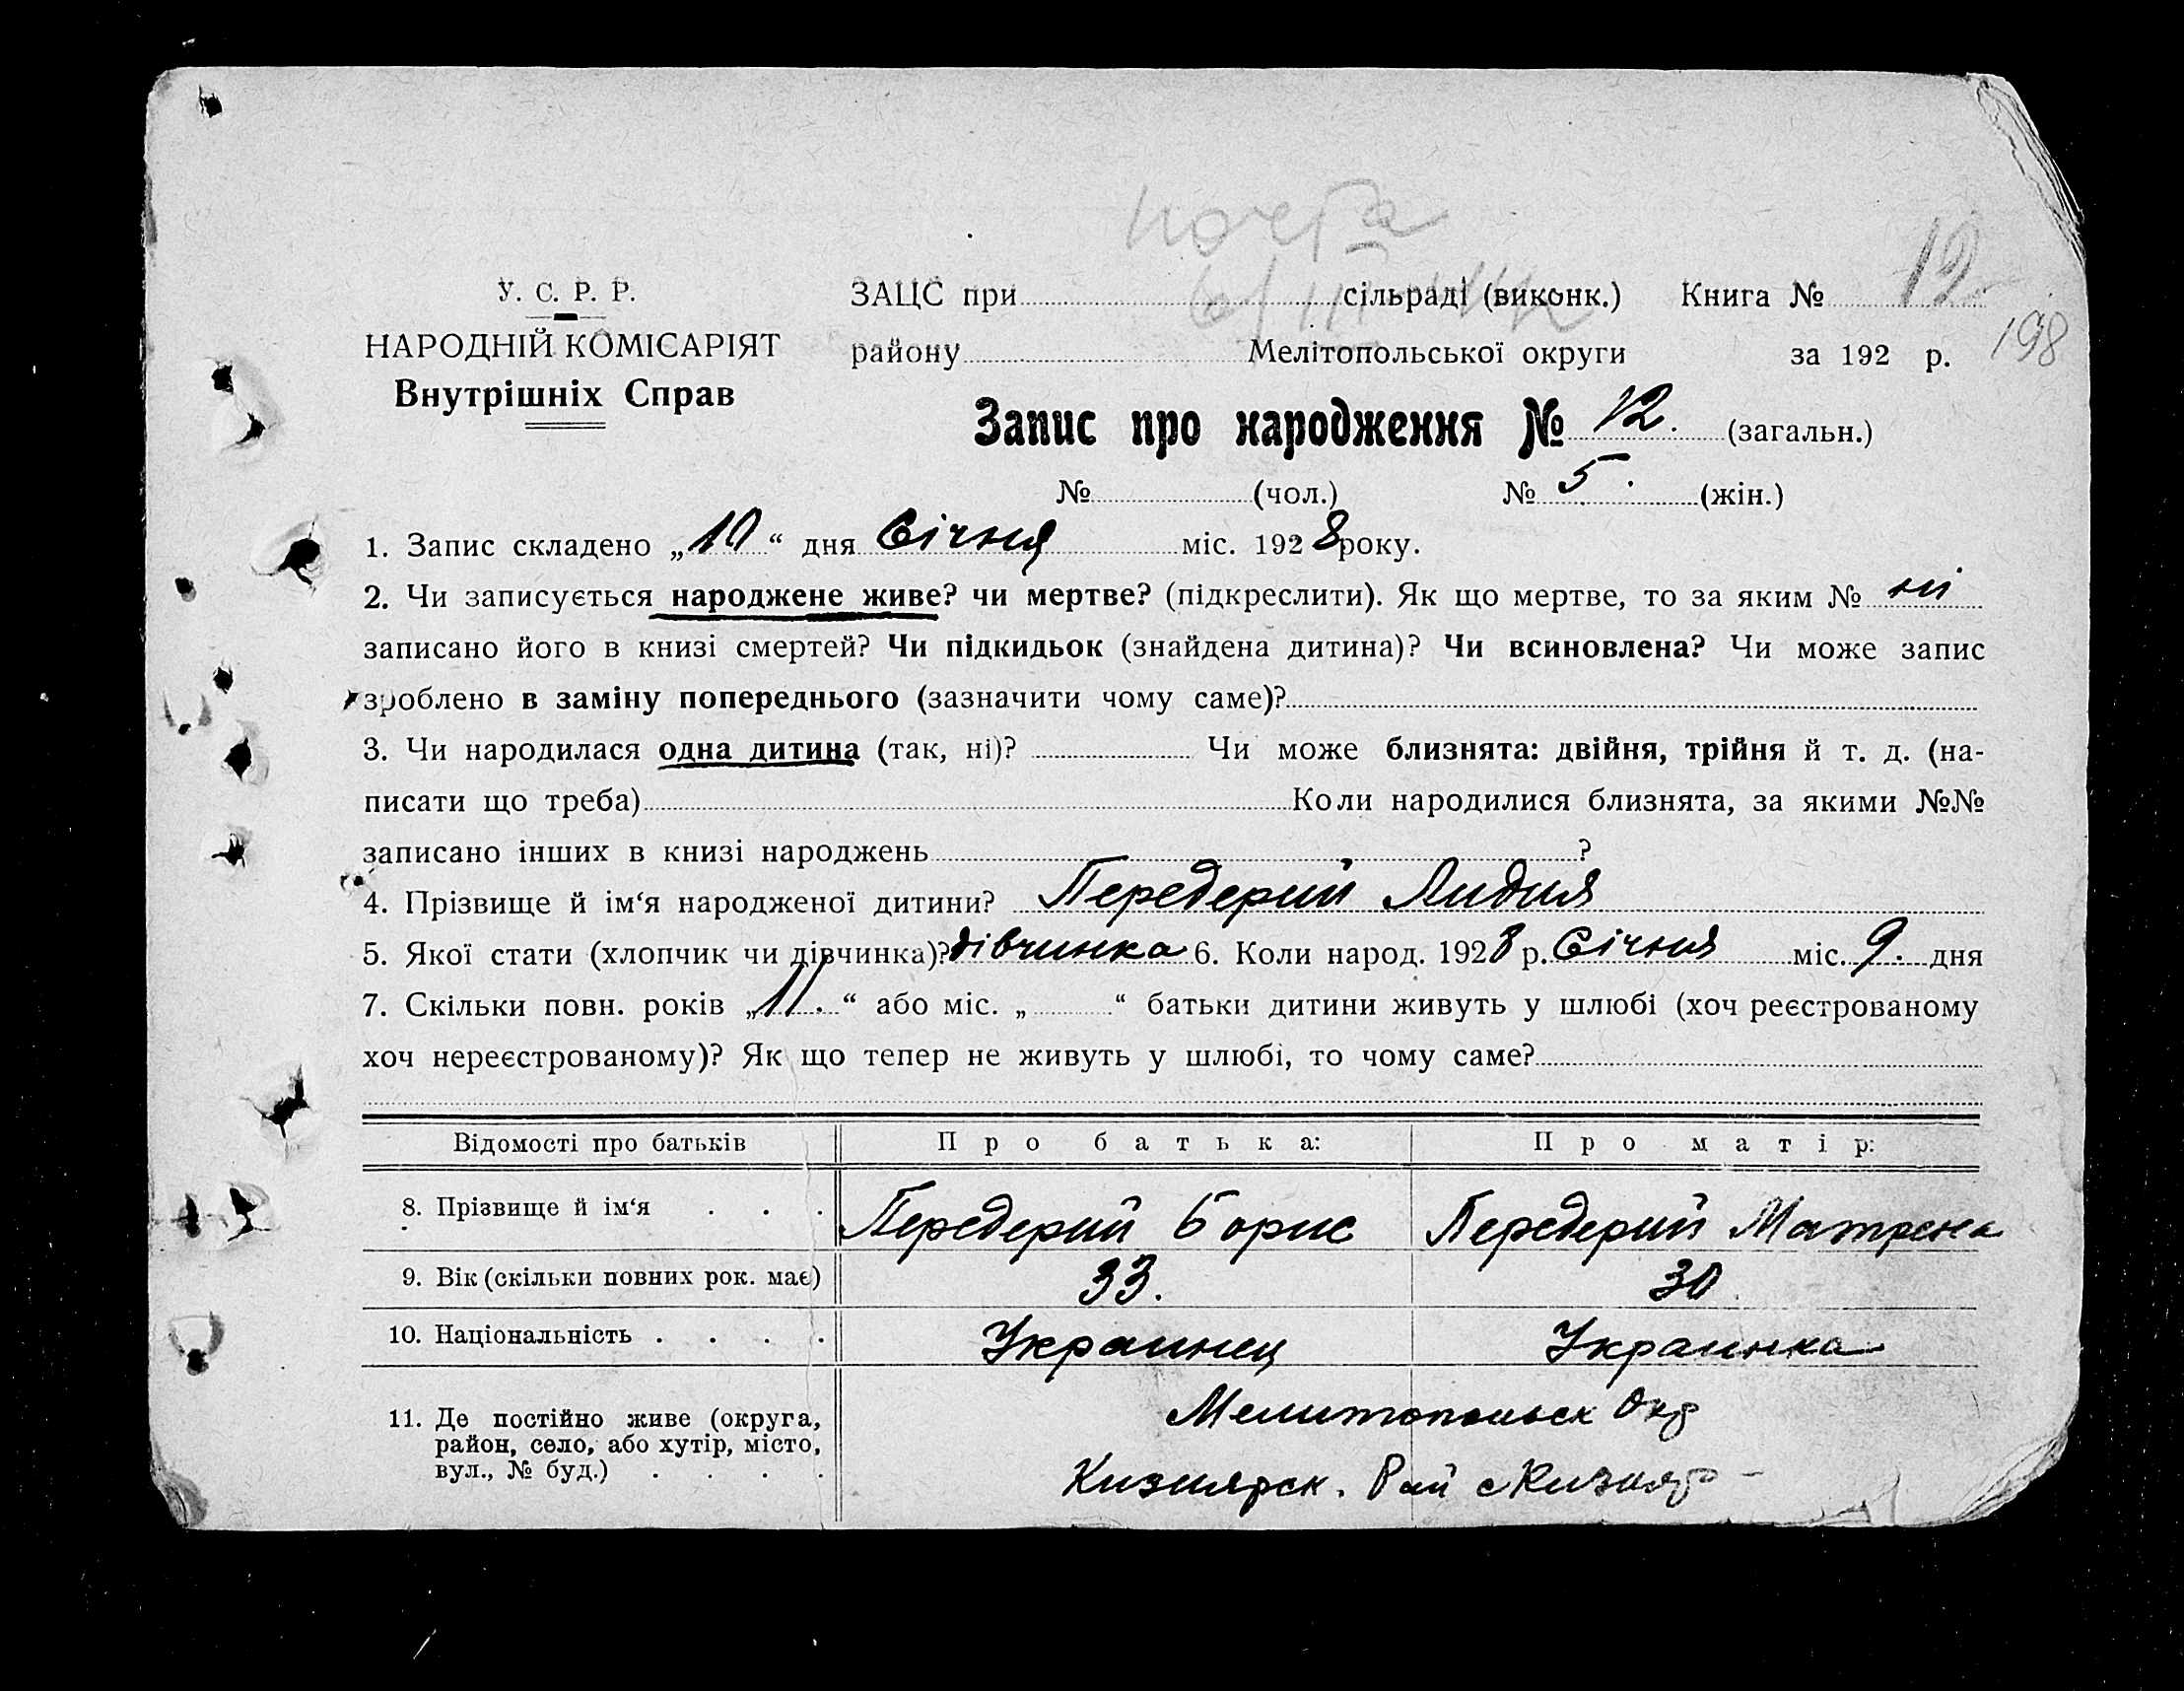 почта
У. С. Р. Р.
НАРОДНІЙ КОМІСАРІЯТ
Внутрішніх Справ
ЗАЦС при сільраді (виконк.) Книга № 12
району Мелітопольської округи за 192 р. 198
Запис про народження № 12. (загальн.)
№ (чол.) № 5. (жін.)
1. Запис складено „10“ дня Січня міс. 1928 року.
2. Чи записується народжене живе? чи мертве? (підкреслити). Як що мертве, то за яким № ні
записано його в книзі смертей? Чи підкидьок (знайдена дитина)? Чи всиновлена? Чи може запис
зроблено в заміну попереднього (зазначити чому саме)?
3. Чи народилася одна дитина (так, ні)? Чи може близнята: двійня, трійня й т. д. (на-
писати що треба) Коли народилися близнята, за якими №№
записано інших в книзі народжень ?
4. Прізвище й ім‘я народженої дитини? Передерий Лидия
5. Якої стати (хлопчик чи дівчинка)? дівчинка 6. Коли народ. 1928 р. Січня міс. 9. дня
7. Скільки повн. років „11.“ або міс. „ “ батьки дитини живуть у шлюбі (хоч реєстрованому
хоч нереєстрованому)? Як що тепер не живуть у шлюбі, то чому саме?
Відомості про батьків Про батька: Про матір:
8. Прізвище й ім‘я . . . Передерий Борис Передерий Матрена
9. Вік (скільки повних рок. має) 33. 30
10. Національність . . . . Украинец Украинка
11. Де постійно живе (округа,
район, село, або хутір, місто,
вул., № буд.) . . . .
Мелитопольск Окр
Кизиярск. Рай с Кизияр